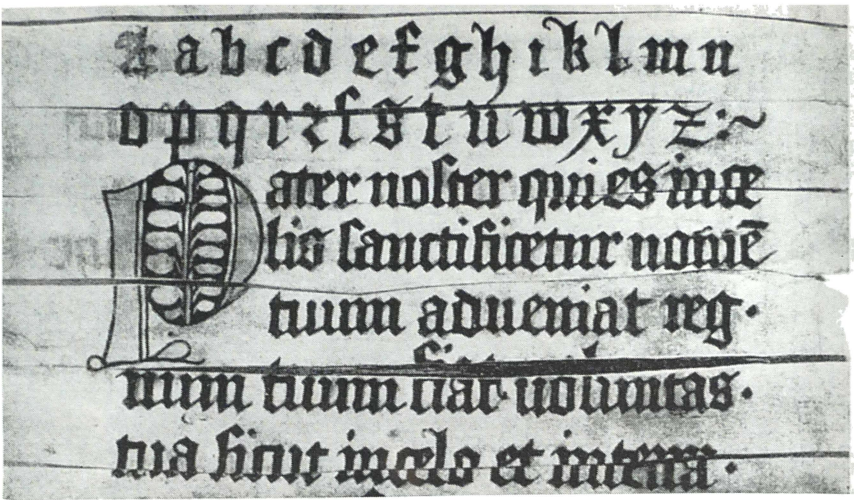 A a b c d e f g h ı k l m n
o p q r ꝛ ſ s t u w x y z :~
Pater noſter qui es in ce
lis ſanctificetur nomē
tuum adueniat reg·
num tuum fiat uoluntas·
tua ſicut in celo et in terra·